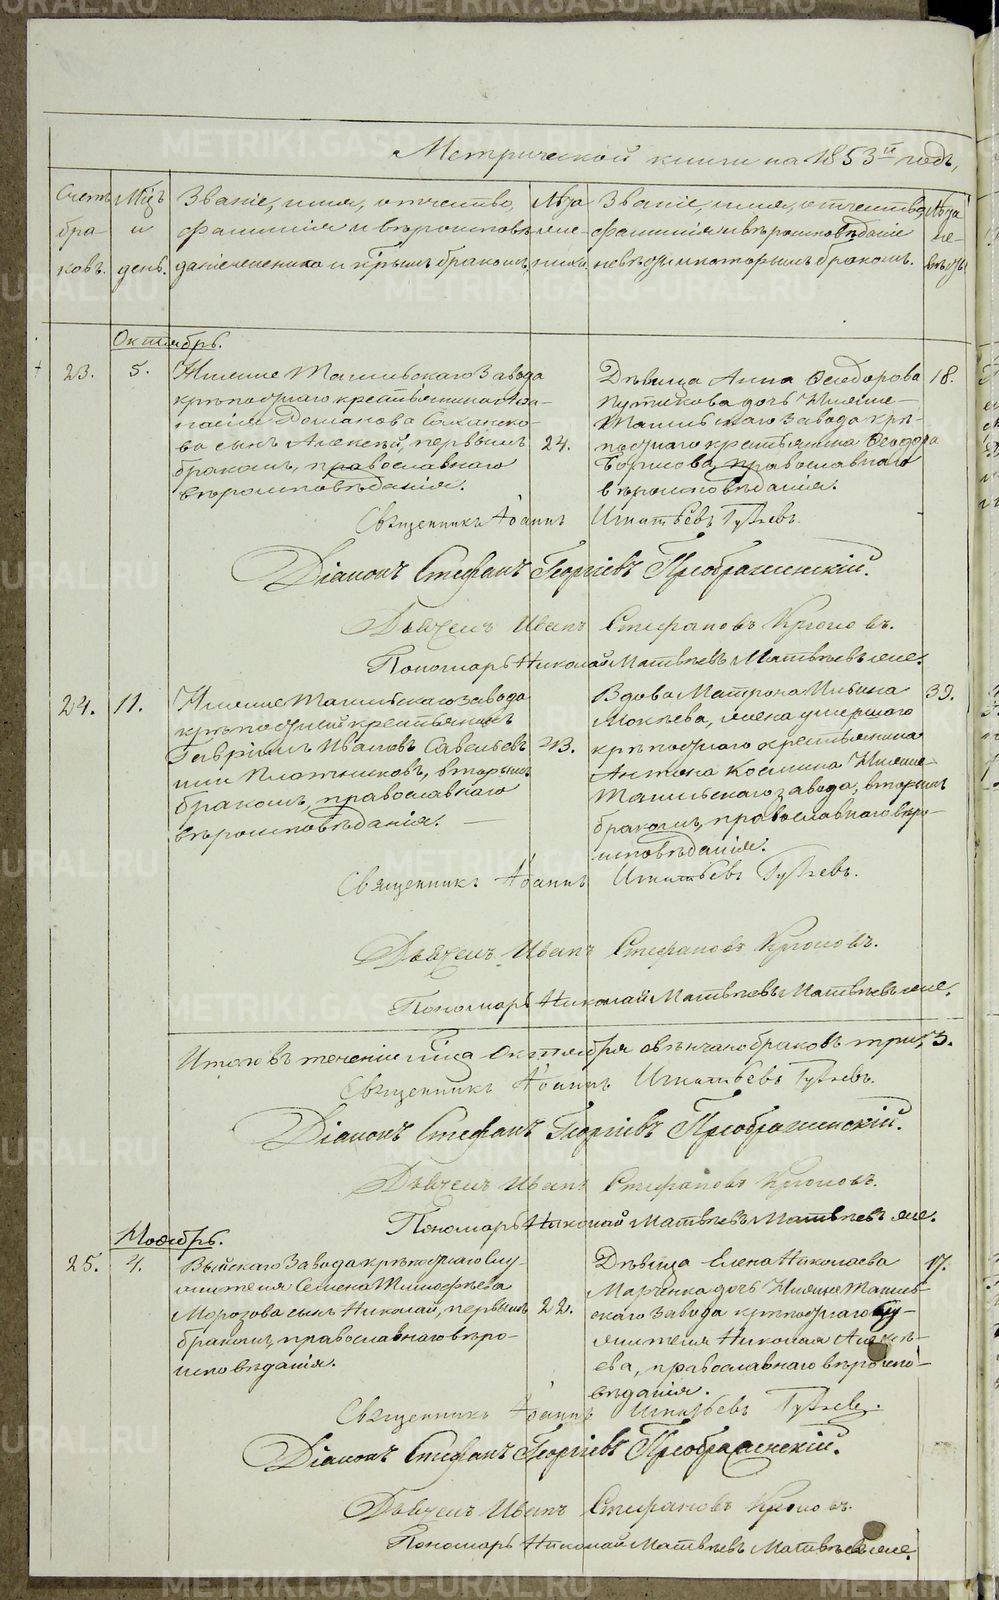 Метрической книги на 1853й годъ,
Счетъ браковъ.
Мцъ и день.
Званіе, имя, отчество, фамилія и вѣроисповѣданіе жениха и которымъ бракомъ,
Лѣта жениха
Званіе, имя, отчество, фамилія и вѣроисповѣданіе невѣсты и которымъ бракомъ.
Лѣта невѣсты
Октябрь.
23. 5.
Нижне Тагильскаго Завода
крѣпостнаго крестьянина Афа-
насія Романова
ва сынъ Алексѣй, первымъ
бракомъ, православнаго
вѣроисповѣданія.
24.
Дѣвица Анна Ѳеодорова
Путикова дочь Нижне-
Тагильскаго Завода крѣ-
постнаго крестьянина Ѳеодора
Борисова, православнаго
вѣроисповѣданія.
18.
Священникъ Іоаннъ Игнатьевъ Гуляевъ.
Діаконъ Стефанъ Георгіевъ Преображенскій.
Дьячекъ Иванъ Стефановъ Крюковъ.
Пономарь Николай Матвѣевъ Матвѣевъ же.
24. 11.
Нижне Тагильскаго завода
крѣпостный крестьянинъ
Гавріилъ Ивановъ Савельевъ
или Плотниковъ, вторымъ
бракомъ, православнаго
вѣроисповѣданія.
43.
Вдова Матрона Ильина
Мокѣева, жена умершаго
крѣпостнаго крестьянина
Антона Космина Нижне-
Тагильскаго завода, вторымъ
бракомъ, православнаго вѣро-
исповѣданія.
39.
Священникъ Іоаннъ Игнатьевъ Гуляевъ.
Дьячекъ Иванъ Стефановъ Крюковъ.
Пономарь Николай Матвѣевъ Матвѣевъ же.
Итого въ теченіе мца Октября овѣнчано браковъ три, 3.
Священникъ Іоаннъ Игнатьевъ Гуляевъ.
Діаконъ Стефанъ Георгіевъ Преображенскій.
Дьячекъ Иванъ Стефановъ Крюковъ.
Пономарь Николай Матвѣевъ Матвѣевъ же.
Ноябрь.
25. 4.
Выйскаго Завода крѣпостнаго слу-
жителя Семена Тимофѣева
Морозова сынъ Николай, первымъ
бракомъ, православнаго вѣро-
исповѣданія.
22.
Дѣвица Елена Николаева
дочь Нижне Тагиль-
скаго Завода крѣпостнаго слу-
жителя Николая Алексѣ-
ева, православнаго вѣроиспо-
вѣданія.
17.
Священникъ Іоаннъ Игнатьевъ Гуляевъ.
Діаконъ Стефанъ Георгіевъ Преображенскій.
Дьячекъ Иванъ Стефановъ Крюковъ.
Пономарь Николай Матвѣевъ Матвѣевъ же.
METRIKI.GASO-URAL.RU